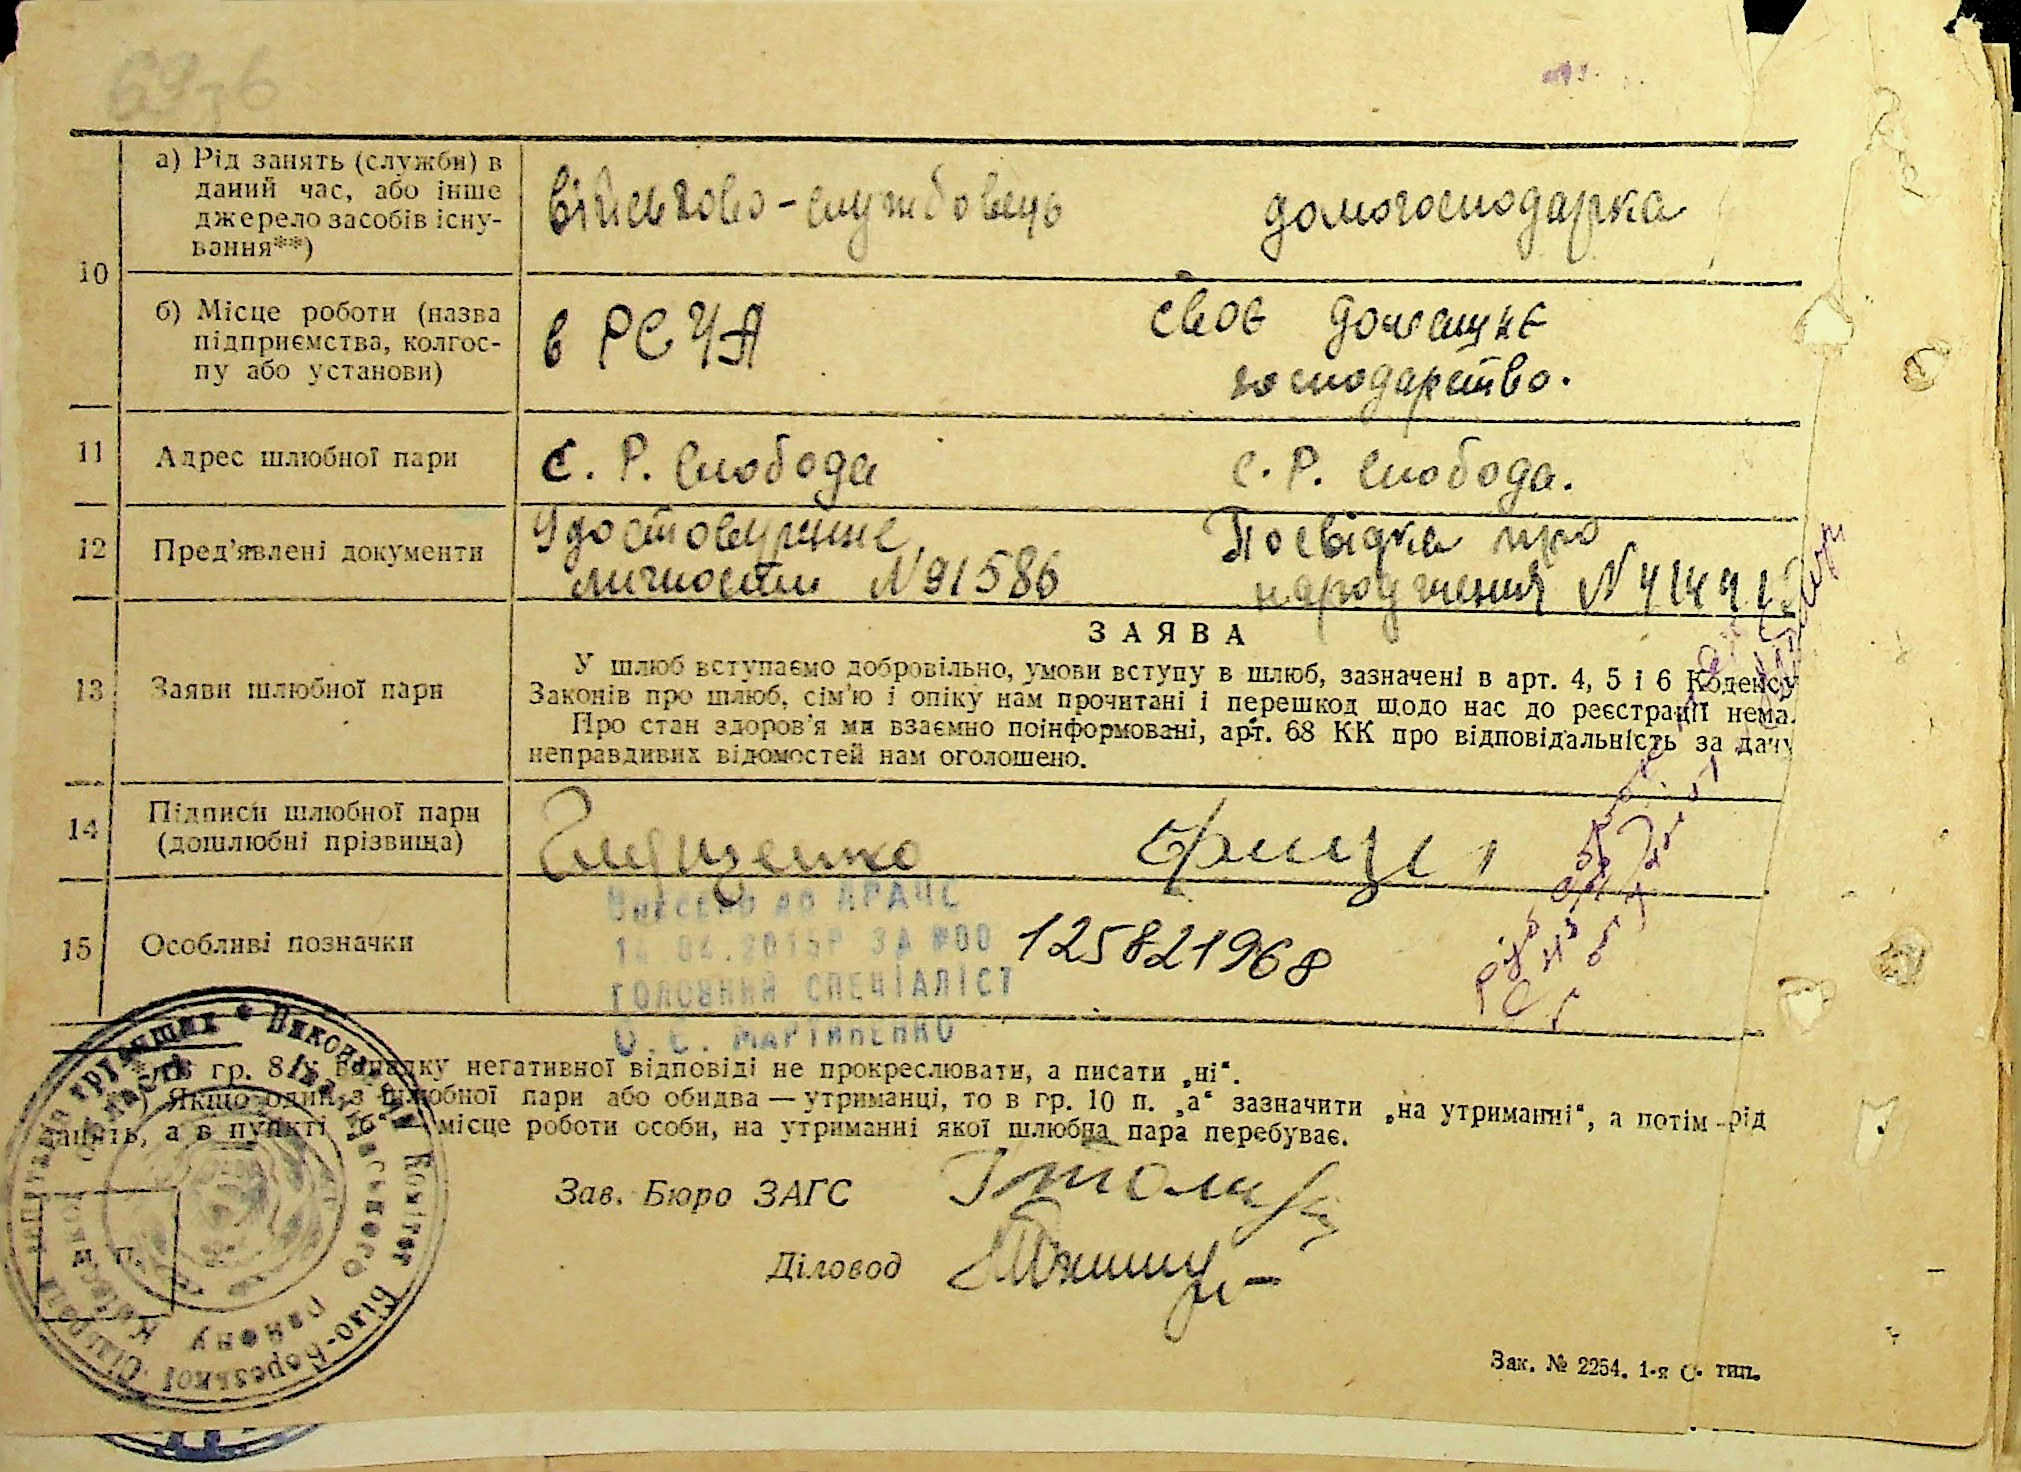 а) Рід занять (служби) в
даний час, або інше
джерело засобів існу-
вання**)
військово-службовець
домогосподарка
10
б) Місце роботи (назва
підприємства, колгос-
пу або установи)
в РСЧА
своє домашнє
господарство.
11
Адрес шлюбної пари
с. Р. Слобода
с. Р. Слобода.
12
Пред'явлені документи
Удостовірение
личности N 91586
Посвідка про
народження N
13
Заяви шлюбної пари
ЗАЯВА
У шлюб вступаємо добровільно, умови вступу в шлюб, зазначені в арт. 4, 5 і 6 Кодексу
Законів про шлюб, сім'ю і опіку нам прочитані і перешкод щодо нас до реєстрації нема.
Про стан здоров'я ми взаємно поінформовані, арт. 68 КК про відповідальність за дачу
неправдивих відомостей нам оголошено.
14
Підписи шлюбної пари
(дошлюбні прізвища)
15
Особливі позначки
Внесено до ДРАЦС
14.04.2015Р ЗА №00
125821968
ГОЛОВНИЙ СПЕЦІАЛІСТ
О.С. МАРТИНЕНКО
*) В гр. 8 у випадку негативної відповіді не прокреслювати, а писати „ні“.
**) Якщо один з шлюбної пари або обидва — утриманці, то в гр. 10 п. „а“ зазначити „на утриманні“, а потім рід
занять, а в пункті „б“ — місце роботи особи, на утриманні якої шлюбна пара перебуває.
Зав. Бюро ЗАГС
Діловод
м. п.
Виконавчий Комітет Біло-Березької Сільської
району
Зак. № 2254. 1-я С. тип.